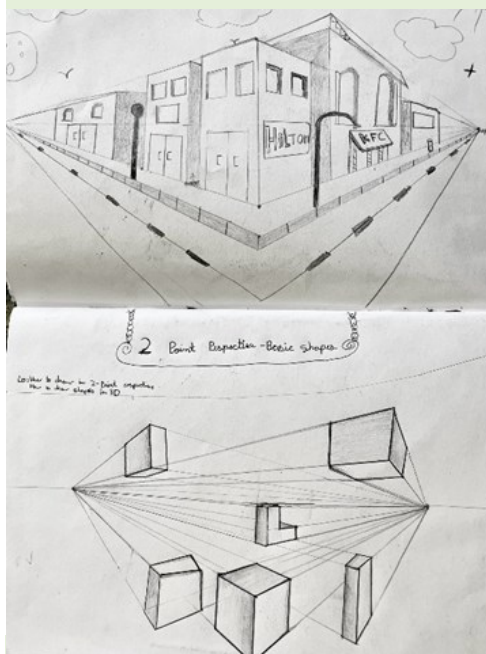 HILTON
KFC
2 Point Perspective - Basic shapes
to draw in 2-Point perspective
How to draw shapes in 3D